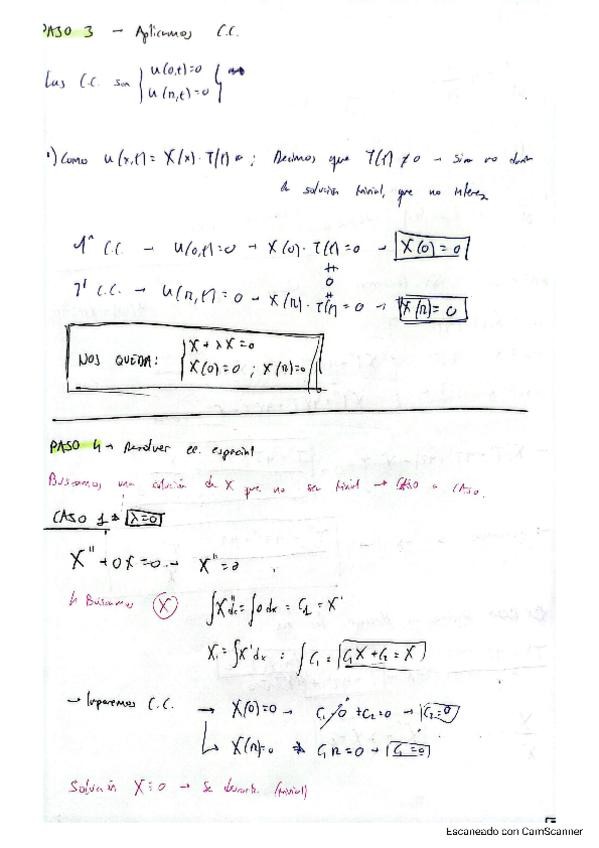 PASO 3 → Aplicamos C.C.
Las C.C. son { u(0,t)=0
u(π,t)=0
1) Como u(x,t) = X(x)·T(t); Decimos que T(t) ≠ 0 → sino no
solución trivial, que no interesa
1ª C.C. → u(0,t)=0 → X(0)·T(t)=0 → X(0)=0
≠
0
≠
2ª C.C. → u(π,t)=0 → X(π)·T(t)=0 → X(π)=0
NOS QUEDA: { X + λX=0
X(0)=0 ; X(π)=0
PASO 4 → Resolver ec. espacial
Buscamos una solución de X que no sea trivial → Caso a caso.
CASO 1 → λ=0
X'' + 0X = 0 → X'' = 0
↳ Buscamos X
∫X''dx = ∫0dx = C1 = X'
X = ∫X'dx = ∫C1 = C1X + C2 = X
→ Imponemos C.C. → X(0)=0 → C1·0 + C2=0 → C2=0
↳ X(π)=0 → C1π=0 → C1=0
Solución X≡0 → Se descarta (trivial)
Escaneado con CamScanner